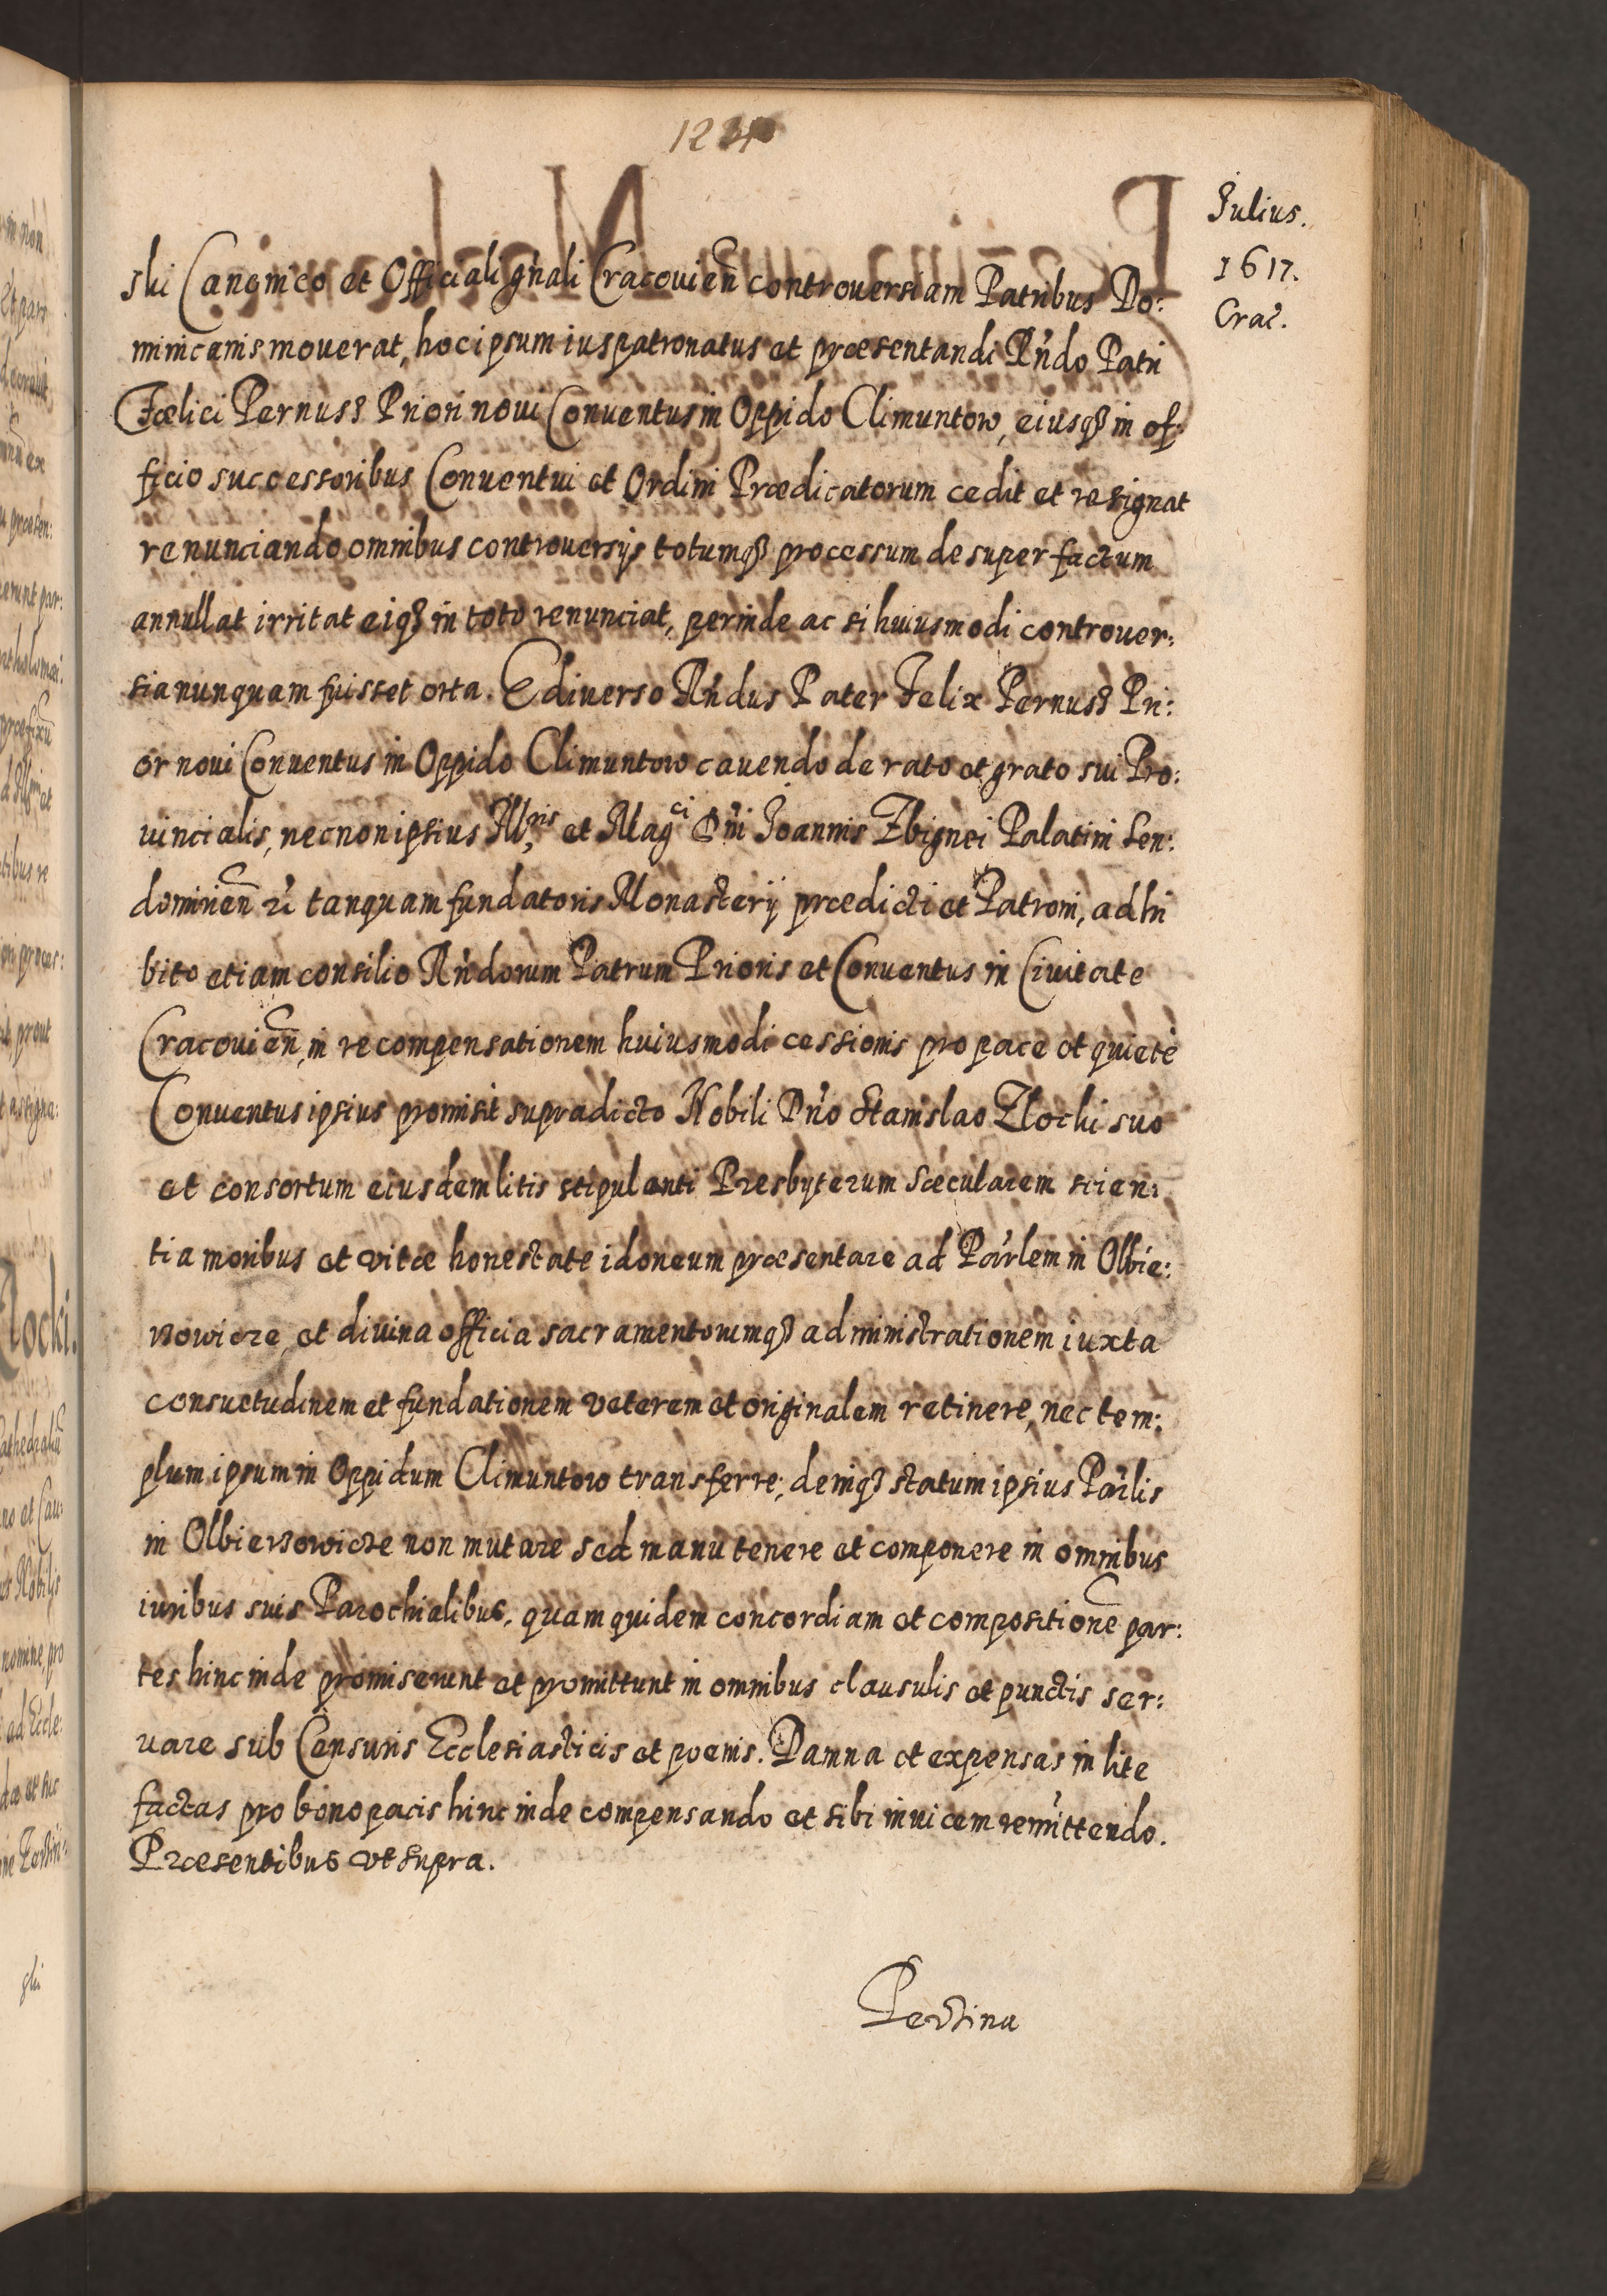 Julius.
1617.
Crac̃.
ski Canonico et Officiali gñali Cracovien̄ controuersiam Patribus Do:
minicanis mouerat, hoc ipsum iuspatronatus et præsentandi Rṅdo Patri
Fœlici Pernus Priori noui Conuentus in Oppido Climuntow, eiusqꝫ in of:
ficio successoribus Conuentui et Ordini Prædicatorum cedit et resignat
renunciando omnibus controuersijs totumqꝫ processum desuper factum
annullat irritat eiqꝫ in toto renunciat, perinde ac si huiusmodi controuer:
sia nunquam fuisset orta. E diuerso Rṅdus Pater Felix Pernus Pri:
or noui Conuentus in Oppido Climuntow cauendo de rato et grato sui Pro:
uincialis, necnon ipsius Ill,ris et Magci Dñi Joannis Zbignei Palatini Sen:
domirien̄ ut tanquam fundatoris Monasterij prædicti et Patroni, adhi
bito etiam consilio Rṅdorum Patrum Prioris et Conuentus in Ciuitate
Cracouien̄, in recompensationem huiusmodi cessionis pro pace et quiete
Conuentus ipsius promisit supradicto Nobili Dño Stanislao Zlocki suo
et consortum eiusdem litis stipulanti Presbyterum Sæcularem scien:
tia moribus et vitæ honestate idoneum præsentare ad Pãrlem in Olbie:
rzowicze, et diuina officia sacramentorumqꝫ administrationem iuxta
consuetudinem et fundationem veterem et originalem retinere, nec tem:
plum ipsum in Oppidum Climuntow transferre; deniqꝫ statum ipsius Pãrlis
in Olbierzowicze non mutare sed manu tenere et componere in omnibus
iuribus suis Parochialibus, quam quidem concordiam et compositionē par:
tes hinc inde promiserunt et promittunt in omnibus clausulis et punctis ser:
uare sub Censuris Ecclesiasticis et poenis. Damna et expensas in lite
factas pro bono pacis hinc inde compensando et sibi inuicem remittendo.
Præsentibus vt supra.
Pertinu